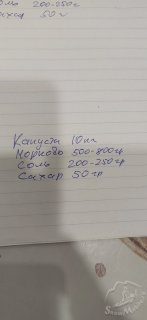 соль 200-250г
сахар 50 г
Капуста 10 кг
Морковь 500-800 гр
Соль 200-250 гр
Сахар 50 гр